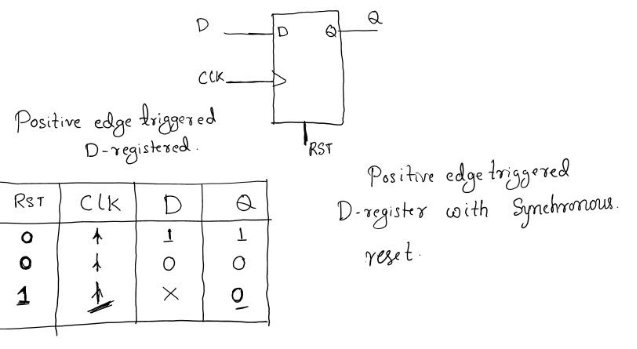 D
D
Q
Q
CLK
RST
Positive edge triggered
D-registered.
RST CLK D Q
0 ↑ 1 1
0 ↑ 0 0
1 ↑ X 0
Positive edge triggered
D-register with Synchronous.
reset.